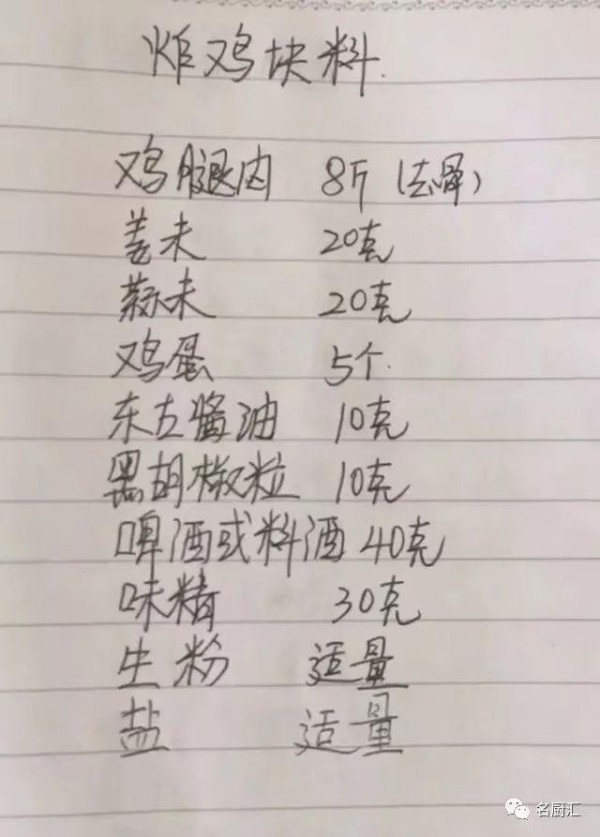 炸鸡块料.
鸡腿肉 8斤(去骨)
姜末 20克
蒜末 20克
鸡蛋 5个
东古酱油 10克
黑胡椒粒 10克
啤酒或料酒 40克
味精 30克
生粉 适量
盐 适量
名厨汇